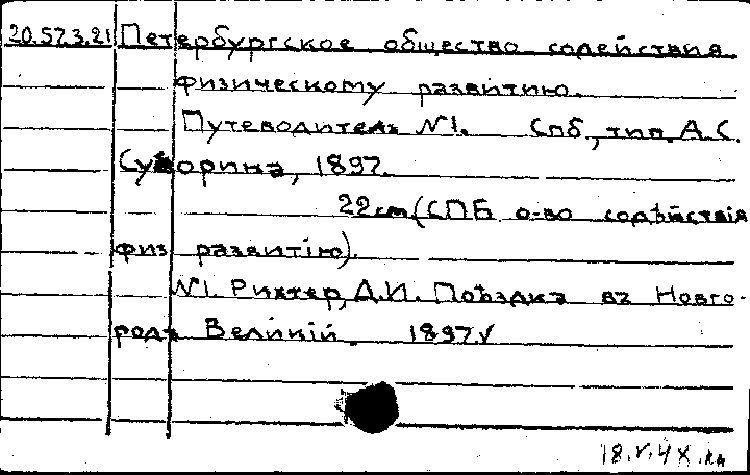 20.57.3.21 Петербургское общество содействия
физическому развитию.
Путеводитель №1. Спб., тип. А.С.
Суворина, 1897.
22 cm (СПБ о-во содѣйствія
физ развитію).
№1. Рихтер, Д.И. Поѣздка въ Новго-
родъ Великій. 1897.V
18.V.48.